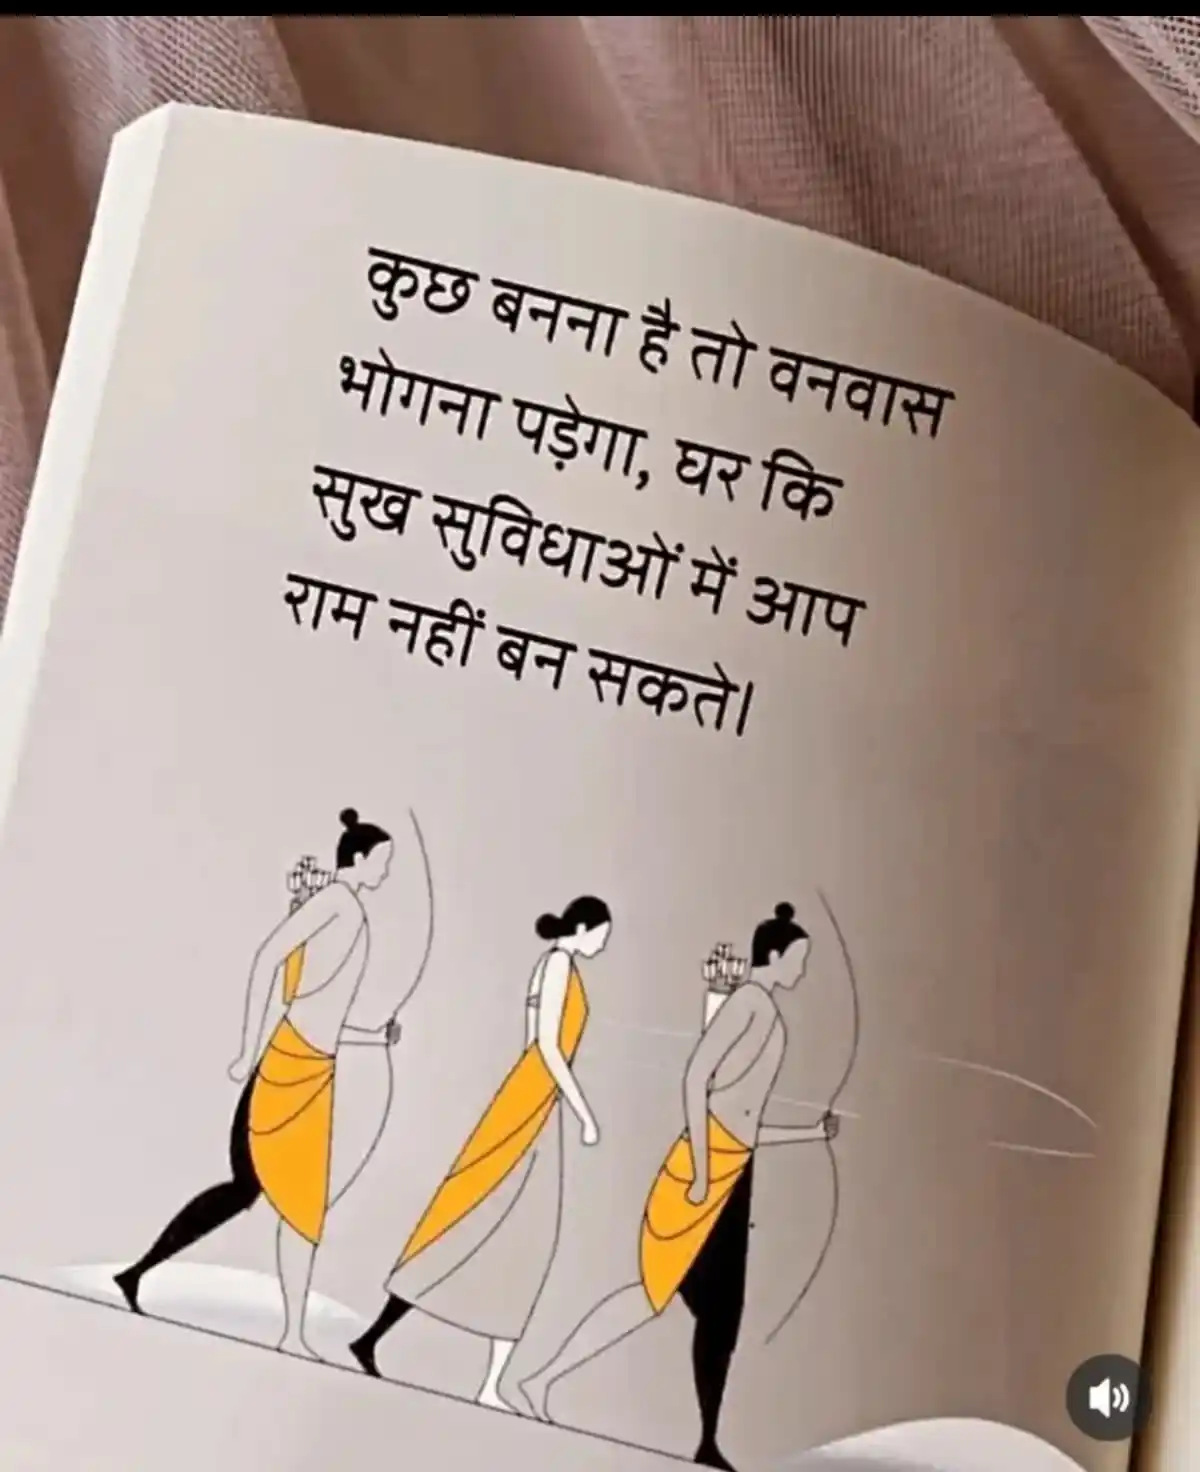 कुछ बनना है तो वनवास
भोगना पड़ेगा, घर कि
सुख सुविधाओं में आप
राम नहीं बन सकते।